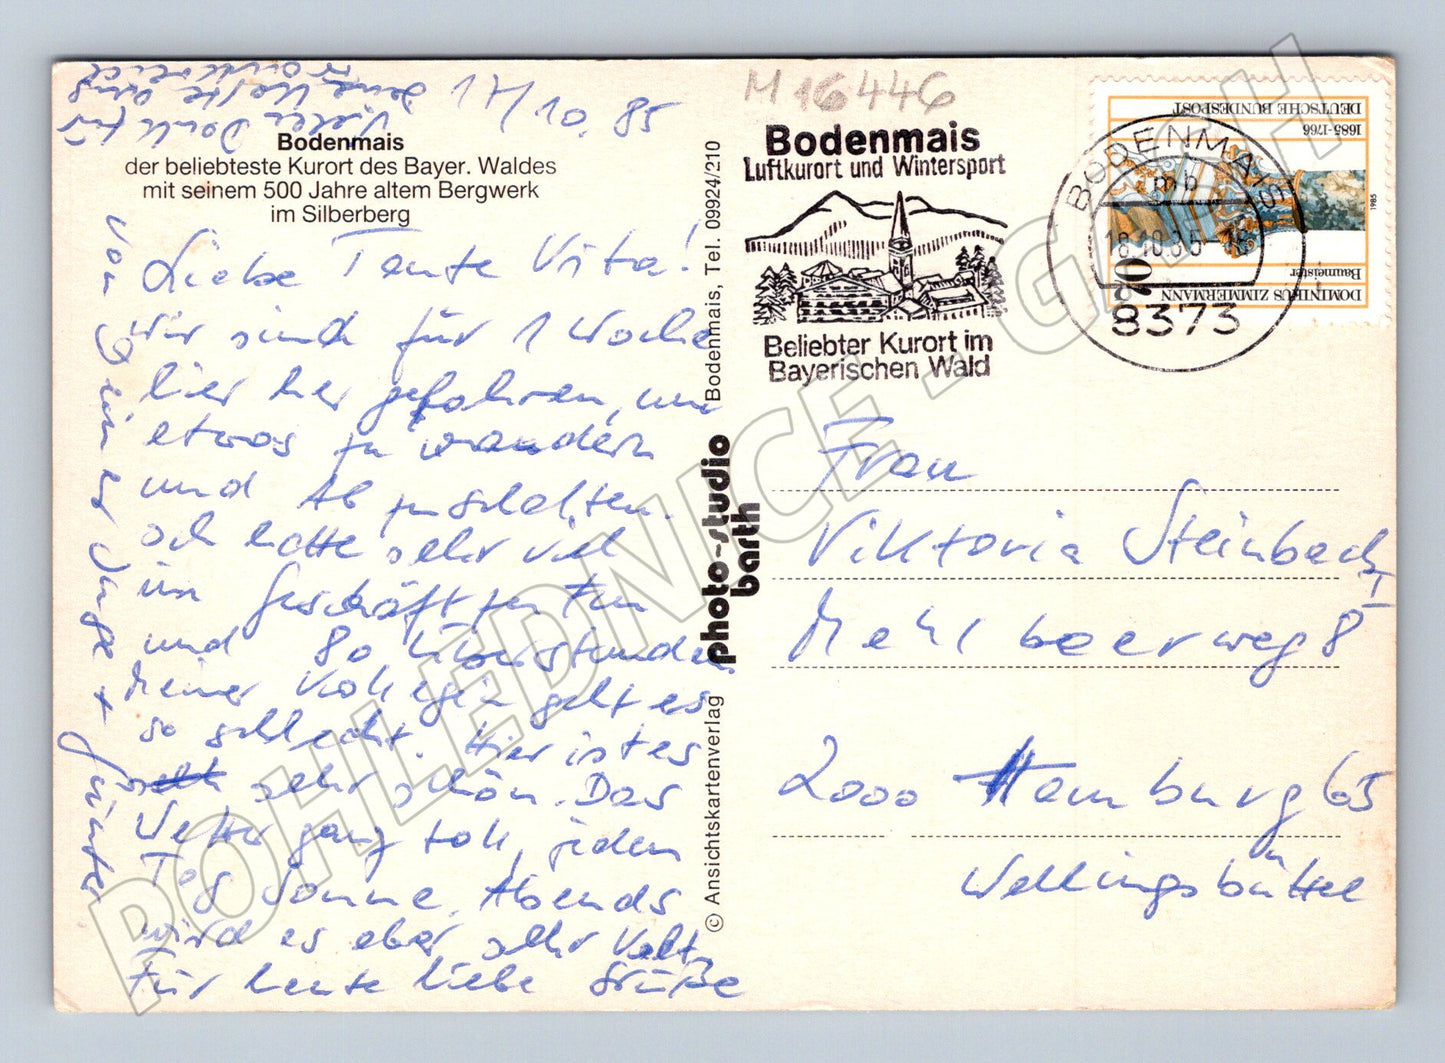 Vielen Dank für
deine Karte aus
Frankreich
17/10.85
Bodenmais
der beliebteste Kurort des Bayer. Waldes
mit seinem 500 Jahre altem Bergwerk
im Silberberg
Liebe Tante Vita!
Wir sind für 1 Woche
hier her gefahren, um
etwas zu wandern
und Abzuschalten.
Ich hatte sehr viel
im Geschäft zu tun
und 80 Überstunden
Meiner Kollegin geht es
so schlecht. Hier ist es
sehr schön. Das
Wetter ganz toll, jeden
Tag Sonne. Abends
wird es aber sehr kalt,
Für heute liebe Grüße
von Inge + Günter
© Ansichtskartenverlag
photo-studio
barth
Bodenmais, Tel. 09924/210
M 16446
Bodenmais
Luftkurort und Wintersport
Beliebter Kurort im
Bayerischen Wald
BODENMAIS
mb
8373
DEUTSCHE BUNDESPOST
1685-1766
1985
70
Baumeister
DOMINIKUS ZIMMERMANN
Frau
Viktoria Steinbach
Mehlbeerweg 8 I
2000 Hamburg 65
Wellingsbüttel
POHLEDNICE - GASH